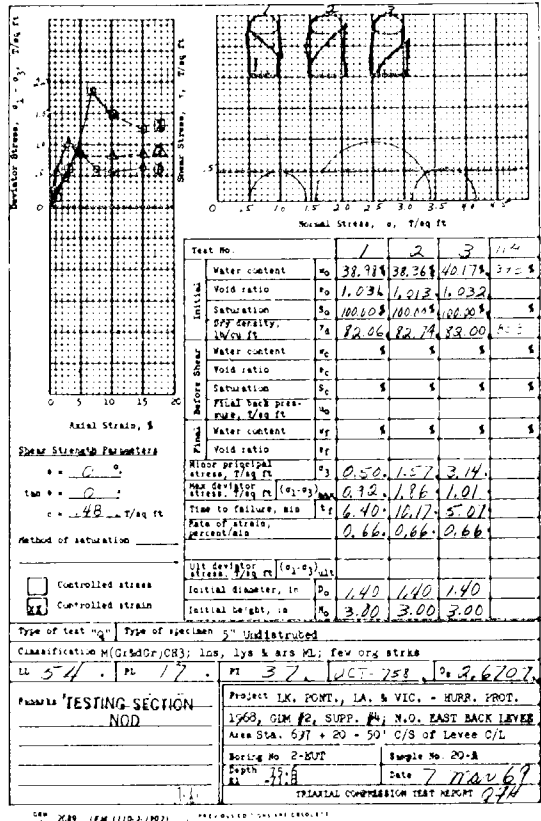 1 2 3
Deviator Stress, σ1 - σ3, T/sq ft
Shear Stress, τ, T/sq ft
.5
0 .5 1.0 1.5 2.0 2.5 3.0 3.5 4.0 4.5 5.0
Normal Stress, σ, T/sq ft
0 5 10 15 20
Axial Strain, %
Shear Strength Parameters
φ = 0 °
tan φ = 0
c = .48 T/sq ft
Method of saturation
Controlled stress
XX Controlled strain
Test No. 1 2 3
Initial
Water content wo 38.98% 38.36% 40.17%
Void ratio eo 1.036 1.013 1.032
Saturation So 100.00% 100.00% 100.00%
Dry density, lb/cu ft γd 82.06 82.74 82.00
Before Shear
Water content wc % % % %
Void ratio ec
Saturation Sc % % % %
Final back pressure, T/sq ft uo
Final
Water content wf % % % %
Void ratio ef
Minor principal stress, T/sq ft σ3 0.50 1.57 3.14
Max deviator stress, T/sq ft (σ1-σ3)max 0.92 1.86 1.01
Time to failure, min tf 6.40 10.17 5.07
Rate of strain, percent/min 0.66 0.66 0.66
Ult deviator stress, T/sq ft (σ1-σ3)ult
Initial diameter, in Do 1.40 1.40 1.40
Initial height, in Ho 3.00 3.00 3.00
Type of test "Q" Type of specimen 5" Undistrubed
Classification M(Gr&dGr)CH3; lns, lys & ars ML; few org strks
LL 54 PL 17 PI 37 UCT-758 Gs 2.6707
Remarks TESTING SECTION
NOD
Project LK. PONT., LA. & VIC. - HURR. PROT.
1968, GDM #2, SUPP. #4; N.O. EAST BACK LEVEE
Area Sta. 637 + 20 - 50' C/S of Levee C/L
Boring No 2-EUT Sample No. 20-B
Depth El
Date 7 Mar 69
TRIAXIAL COMPRESSION TEST REPORT